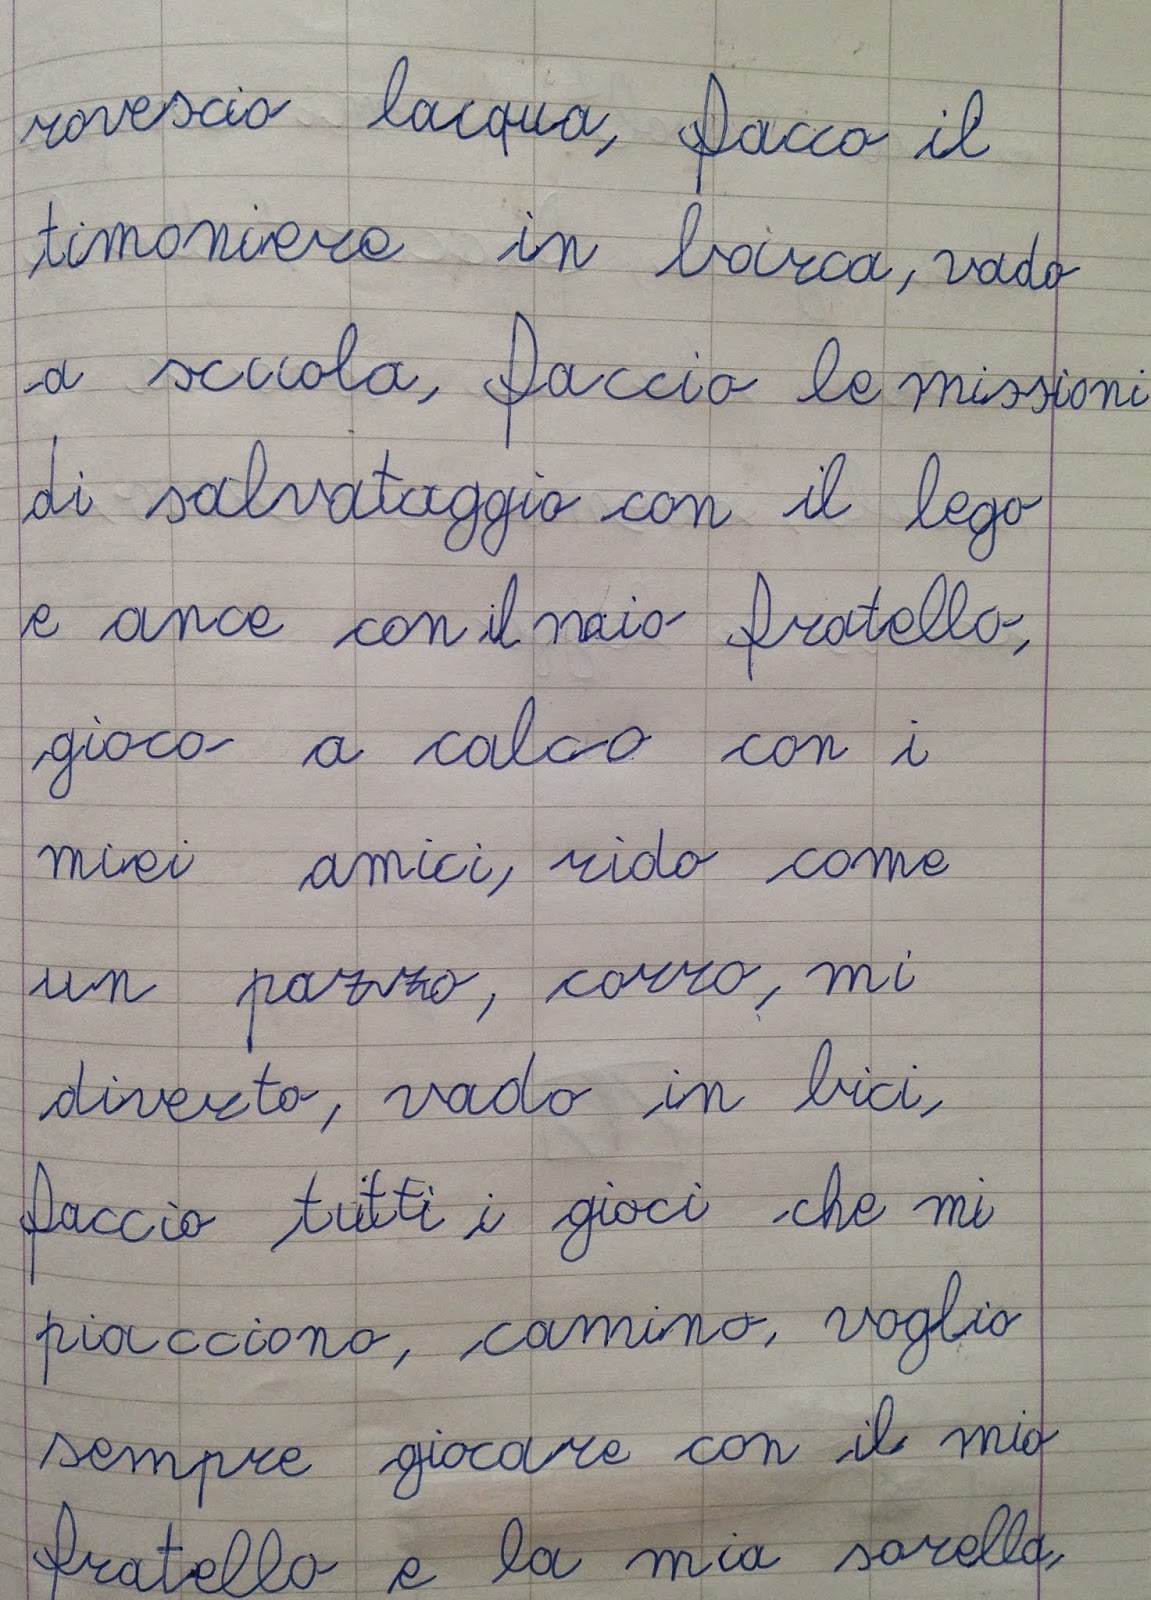 rovescio lacqua, facco il
timoniere in barca, vado
a scuola, faccio le missioni
di salvataggio con il lego
e ance con il maio fratello,
gioco a calco con i
miei amici, rido come
un pazzo, corro, mi
diverto, vado in bici,
faccio tutti i gioci che mi
piacciono, camino, voglio
sempre giocare con il mio
fratello e la mia sorella,